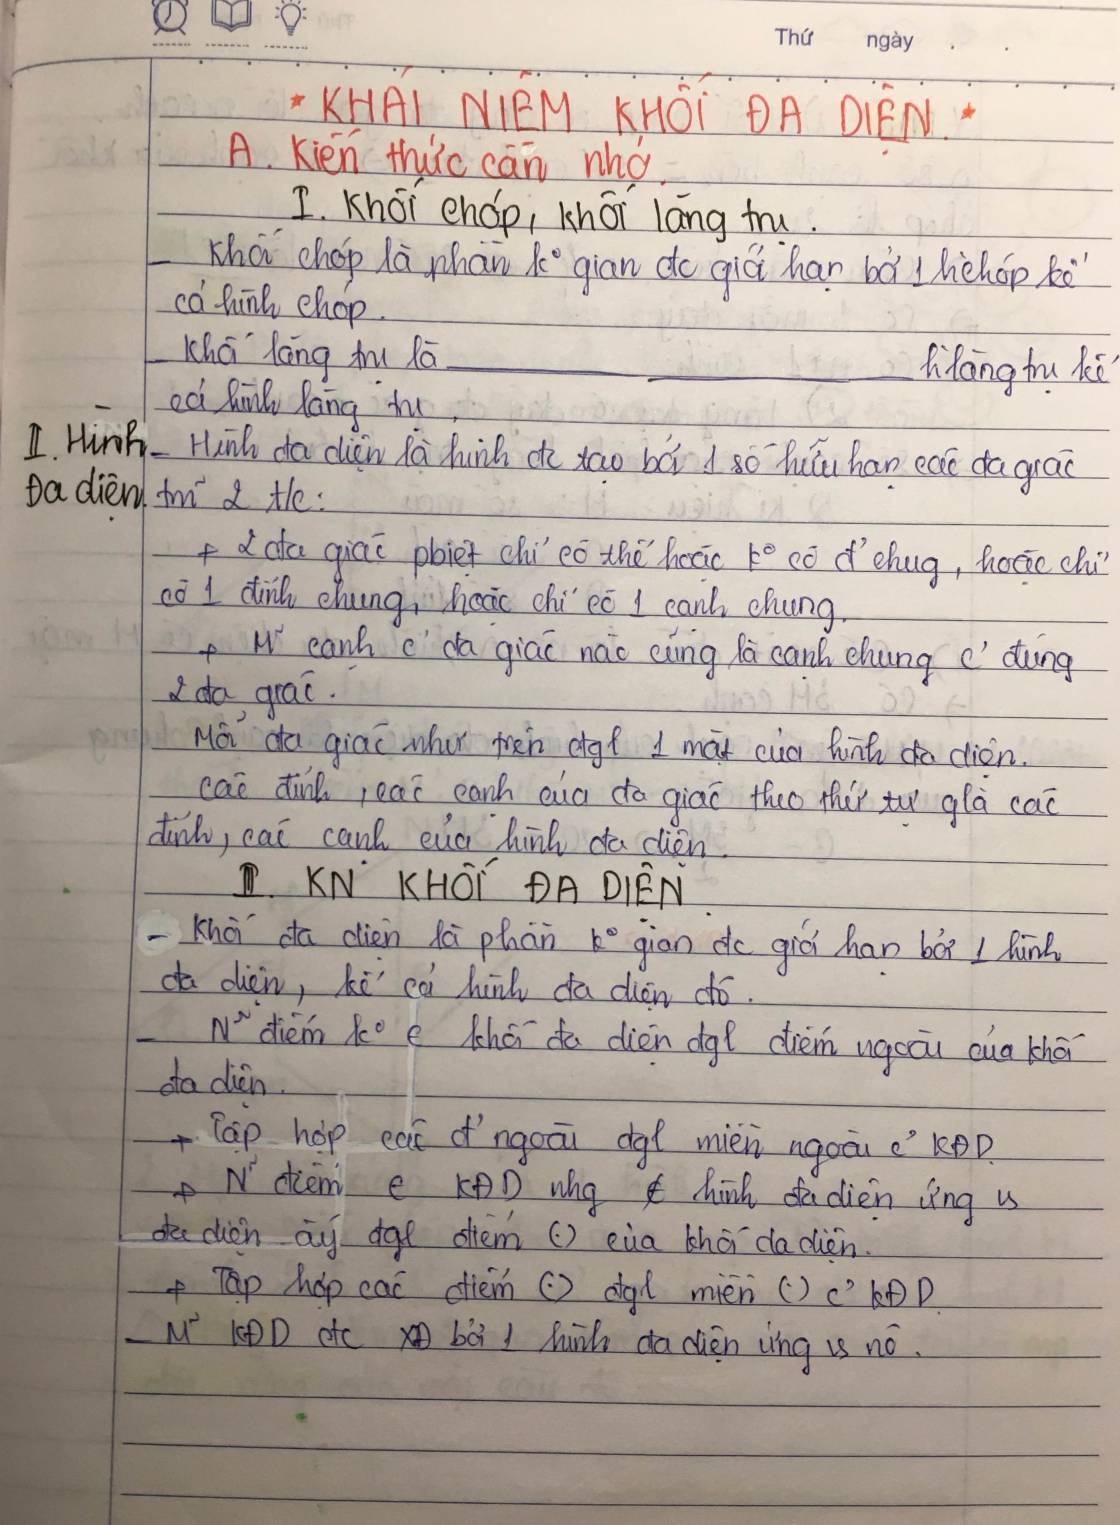 Thứ ngày . .
* KHÁI NIỆM KHỐI ĐA DIỆN. *
A. Kiến thức cần nhớ.
I. Khối chóp, khối lăng trụ.
- Khối chóp là phần k° gian đc giới hạn bởi 1 hìchóp kể
cả hình chóp.
- Khối lăng trụ là ____________________ hìlăng trụ kể
cả hình lăng trụ.
II. Hình
Đa diện.
- Hình đa diện là hình đc tạo bởi 1 số hữu hạn các đa giác
tm~ 2 t/c:
+ 2 đa giác pbiệt chỉ có thể hoặc k° có đ' chug, hoặc chỉ
có 1 đỉnh chung, hoặc chỉ có 1 cạnh chung.
+ M~ cạnh c' đa giác nào cũng là cạnh chung c' đúng
2 đa giác.
Mỗi đa giác như trên đgl 1 mặt của hình đa diện.
Các đỉnh, các cạnh của đa giác theo thứ tự glà các
đỉnh, các cạnh của hình đa diện.
II. KN KHỐI ĐA DIỆN.
- Khối đa diện là phần k° gian đc giới hạn bởi 1 hình
đa diện, kể cả hình đa diện đó.
- N~ điểm k° e khối đa diện đgl điểm ngoài của khối
đa diện.
+ Tập hợp các đ' ngoài đgl miền ngoài c' KĐD.
+ N~ điểm e KĐD nhg ∉ hình đa diện ứng vs
đa diện ấy đgl điểm (.) của khối đa diện.
+ Tập hợp các điểm (.) đgl miền (.) c' kĐD.
- M~ KĐD đc XĐ bởi 1 hình đa diện ứng vs nó.